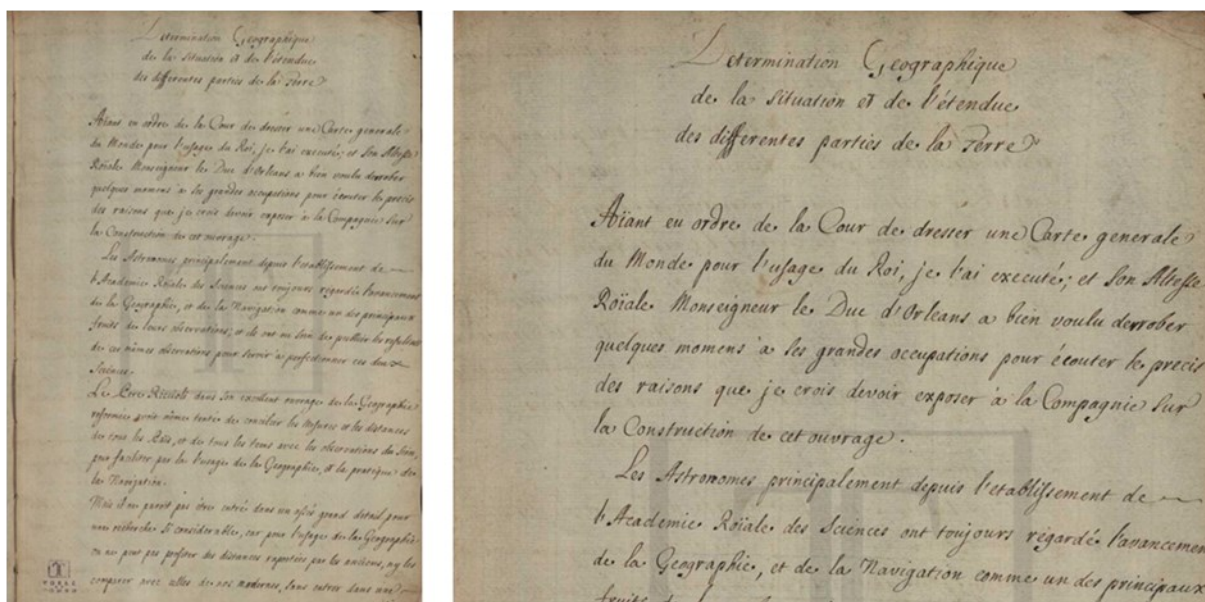 Determination Geographique
de la situation et de l'étendue
des differentes parties de la Terre
Aïant eu ordre de la Cour de dresser une Carte generale
du Monde pour l'usage du Roi, je l'ai executé; et Son Altesse
Roïale Monseigneur le Duc d'Orleans a bien voulu derrober
quelques momens à ses grandes occupations pour écouter le precis
des raisons que je crois devoir exposer à la Compagnie sur
la Construction de cet ouvrage.
Les Astronomes principalement depuis l'etablissement de
l'Academie Roïale des Sciences ont toujours regardé l'avancement
de la Geographie, et de la Navigation comme un des principaux
fruits de leurs observations; et ils ont eu soin de publier les
de ces mêmes observations pour servir à perfectionner ces deux
Sciences.
Le Pere Riccioli dans son excellent ouvrage de la Geographie
reformée avoit même tenté de concilier les mesures et les distances
de tous les Païs, et de tous les tems avec les observations du
pour faciliter par là l'usage de la Geographie, et la pratique de
la Navigation.
Mais il ne paroit pas être entré dans un assés grand detail pour
une recherche si considerable, car pour l'usage de la Geographie
on ne peut pas profiter des distances raportées par les anciens, ny les
comparer avec celles de nos modernes, sans entrer dans une
Determination Geographique
de la situation et de l'étendue
des differentes parties de la Terre
Aïant eu ordre de la Cour de dresser une Carte generale
du Monde pour l'usage du Roi, je l'ai executé; et Son Altesse
Roïale Monseigneur le Duc d'Orleans a bien voulu derrober
quelques momens à ses grandes occupations pour écouter le precis
des raisons que je crois devoir exposer à la Compagnie sur
la Construction de cet ouvrage.
Les Astronomes principalement depuis l'etablissement de
l'Academie Roïale des Sciences ont toujours regardé l'avancemen
de la Geographie, et de la Navigation comme un des principaux